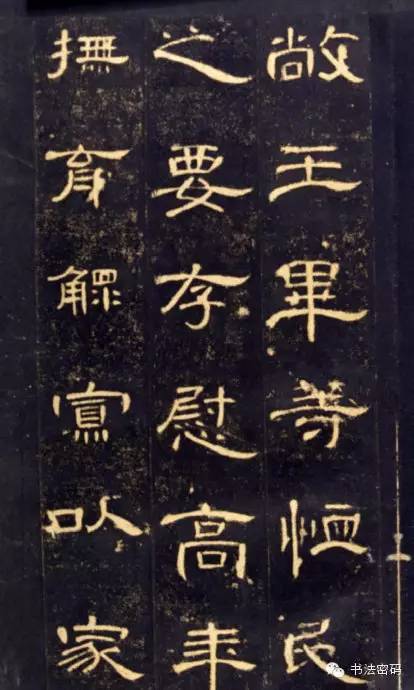 敞王畢等恤民
之要存慰高年
撫育鰥寡以家
书法密码